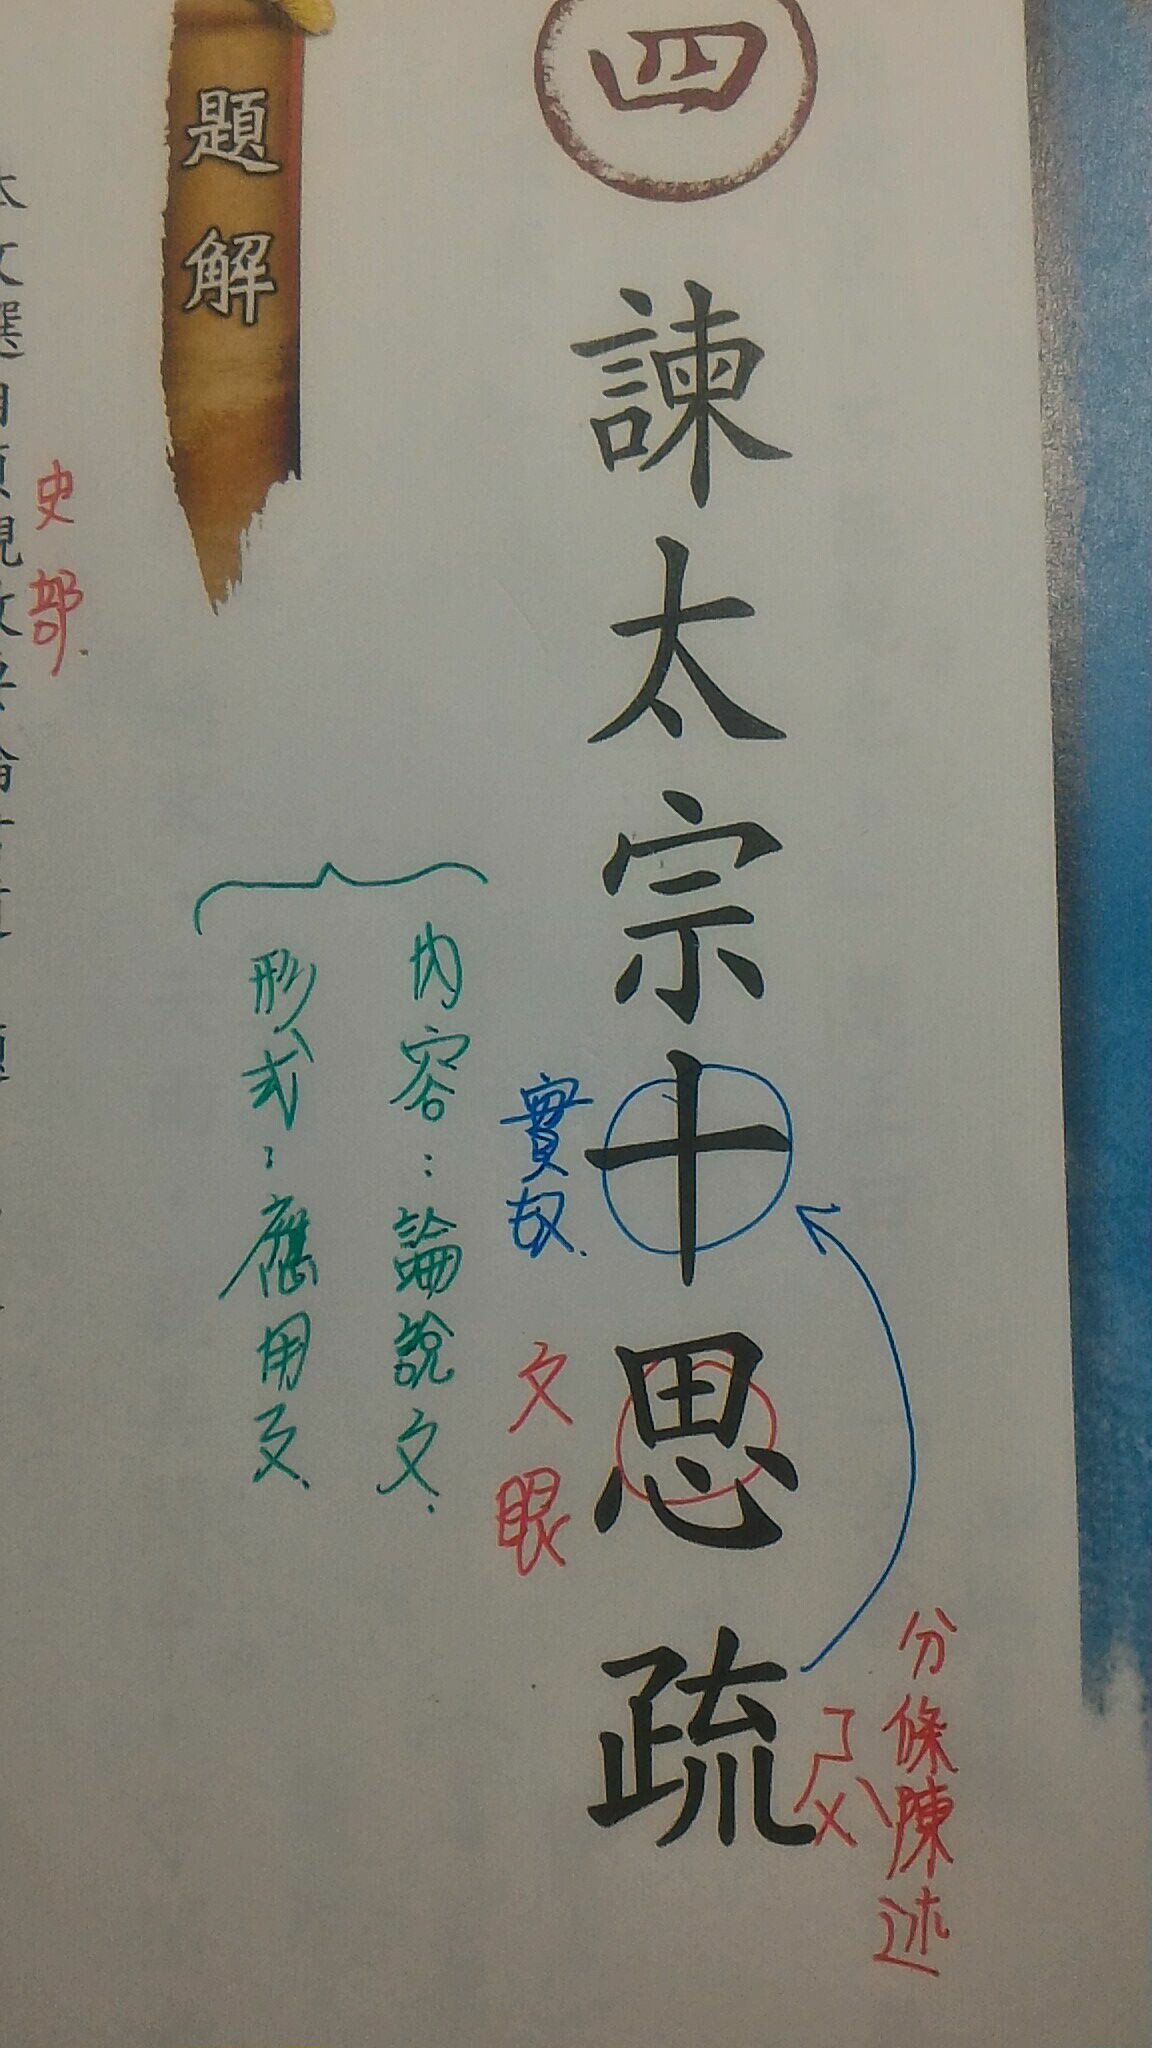 四
諫太宗十思疏
ㄕㄨˋ
分條陳述
實數
文眼
內容：論說文.
形式：應用文.
題解
史部.